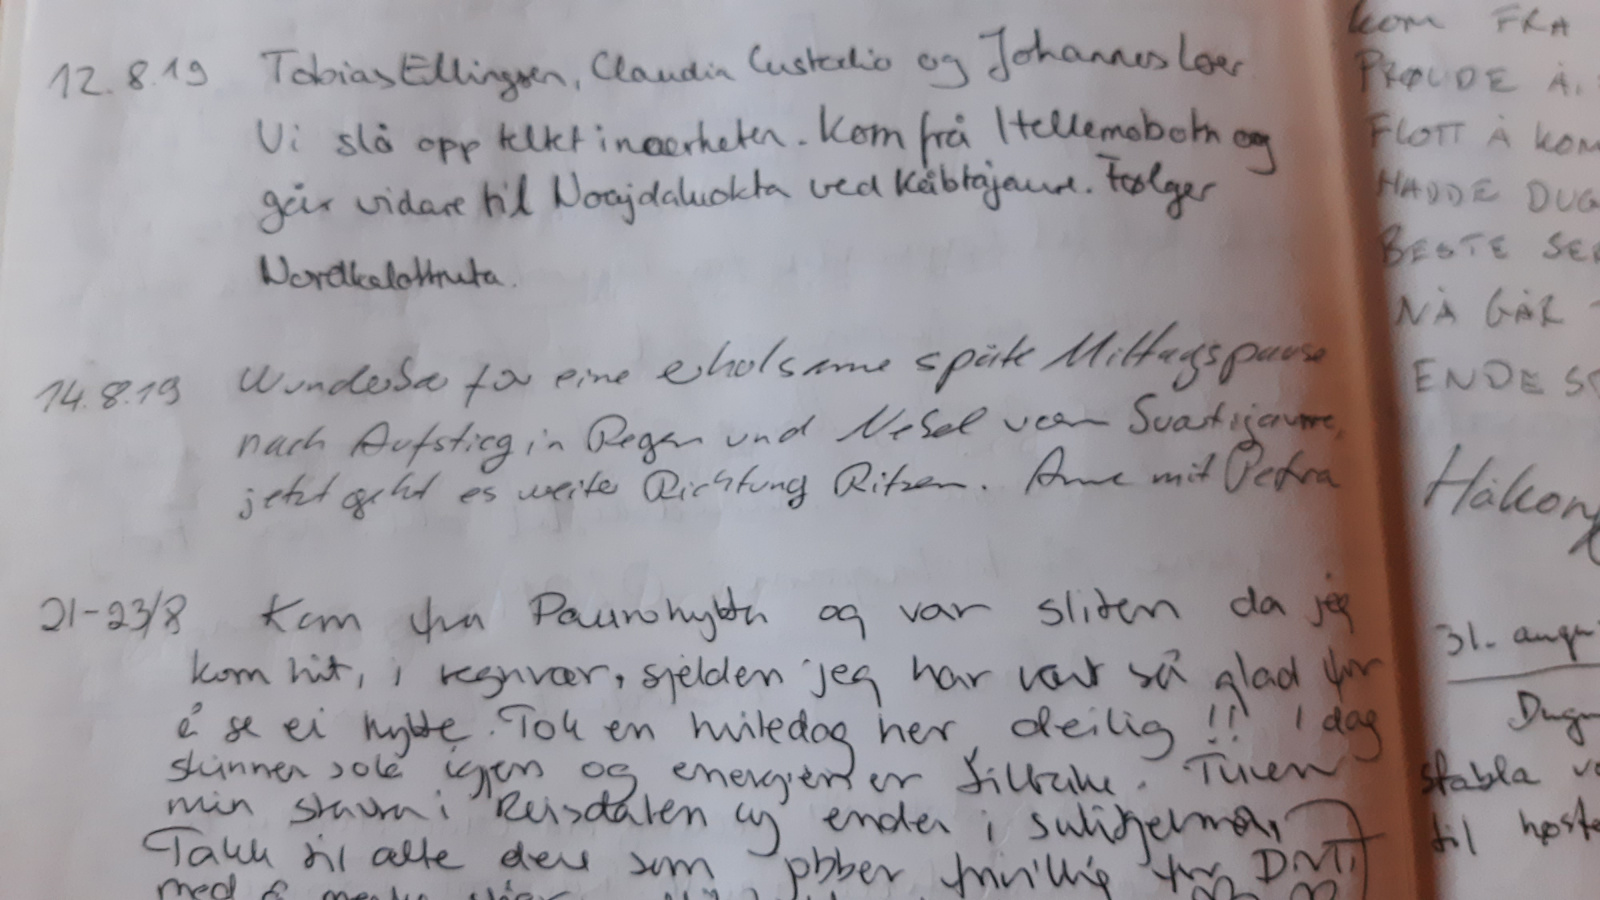 12.8.19 Tobias Ellingsen, Claudia Custodio og Johannes Loer
Vi slå opp teltet i nærheten. Kom frå Hellemobotn og
går vidare til Noajdaluokta ved Kåbtåjaure. Følger
Nordkalottruta.
14.8.19 Wunderbar für eine erholsame späte Mittagspause
nach Aufstieg in Regen und Nebel vom
jetzt geht es weiter Richtung Ritsem. Anne mit Petra
21-23/8 Kom fra Paurohytta og var sliten da jeg
kom hit, i regnvær, sjelden jeg har vært så glad for
å se ei hytte. Tok en hviledag her deilig!! I dag
skinner sola igjen og energien er tilbake. Turen
min starta i Reisadalen og ender i Sulitjelma,
Takk til alle dere som jobber frivillig for DNT,
med å
KOM FRA
PRØVDE Å
FLOTT Å KOM
HADDE DUG
BESTE SE
NÅ GÅR
ENDE
Håkon
31. augu
Dugn
stabla
til høste